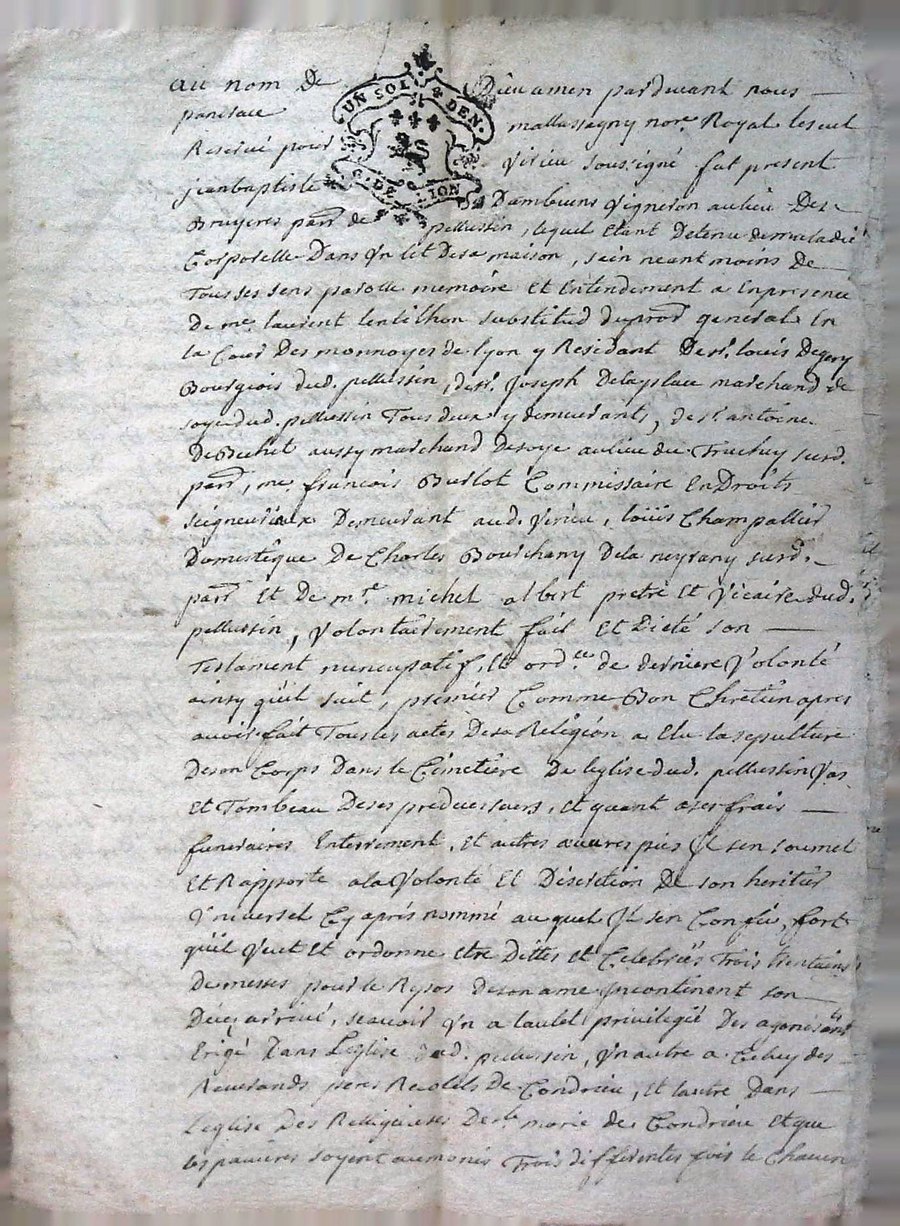 au nom De Dieu amen pardevant nous
pancrace mallassagny nore. Royal lescul
Reservé pour Virieu soussigné fut present
UN SOL 4 DEN.
G. DE LION
jeanbaptiste Dambuens Vigneron au lieu Des
Bruyeres parr. de pellussin, lequel Etant Detenu de maladie
Corporelle Dans Vn Lit Desa maison, sein neant moins De
Tous ses sens parolle memoire Et Entendement a En presence
De me. laurent lentilhon substitud du pror. general En
la Cour Des monnoyes de lyon y Residant De sr. louis Degery
Bourgeois dud. pellussin, de sr. Joseph Delayslau marchand de
soye dud. pellussin Tous deux y demeurants, de sr. antoine
De Bechet aussy marchand De soye au lieu du Truchuy surd.
parr., me. francois Burlot Commissaire En Droits
seigneuriaux Demeurant aud. Virieu, loüis Champallier
Domestique De Charles Bourchany De la neyrany surd.
parr. Et De mre. michel albert pretre Et Vicaire dud.
pellussin, Volontairement fait Et Dicté son
Testament nuncupatif, Et ord.ce de derniere Volonté
ainsy qu'il suit, premier Comme Bon Chretien apres
avoir fait Tous les actes De sa Religion a Elu la sepulture
De son Corps Dans le Cimetiere De leglise dud. pellussin Vas
Et Tombeau De ses predecesseurs, Et quant a ses frais
funeraires Enterrement, Et autres œuvres pies Il sen soumet
Et Rapporte a la Volonté Et Discretion De son heritier
Vniversel Cy aprés nommé au quel Il sen Confie, fort
qu'il Veut Et ordonne Etre Dittes Et Celebrées Trois Trentains
De messes pour le Repos De son ame Incontinent son
Décés arrivé, scavoir Vn a lautel privilegié Des agonisants
Erigé Dans L'eglise dud. pellussin, Vn autre a Celuy des
Reverands peres Recolets de Condrieu, Et lautre Dans
l'eglise Des Religieuses De ste marie de Condrieu Et que
les pauvres soyent aumonés Trois differentes fois le Chacun